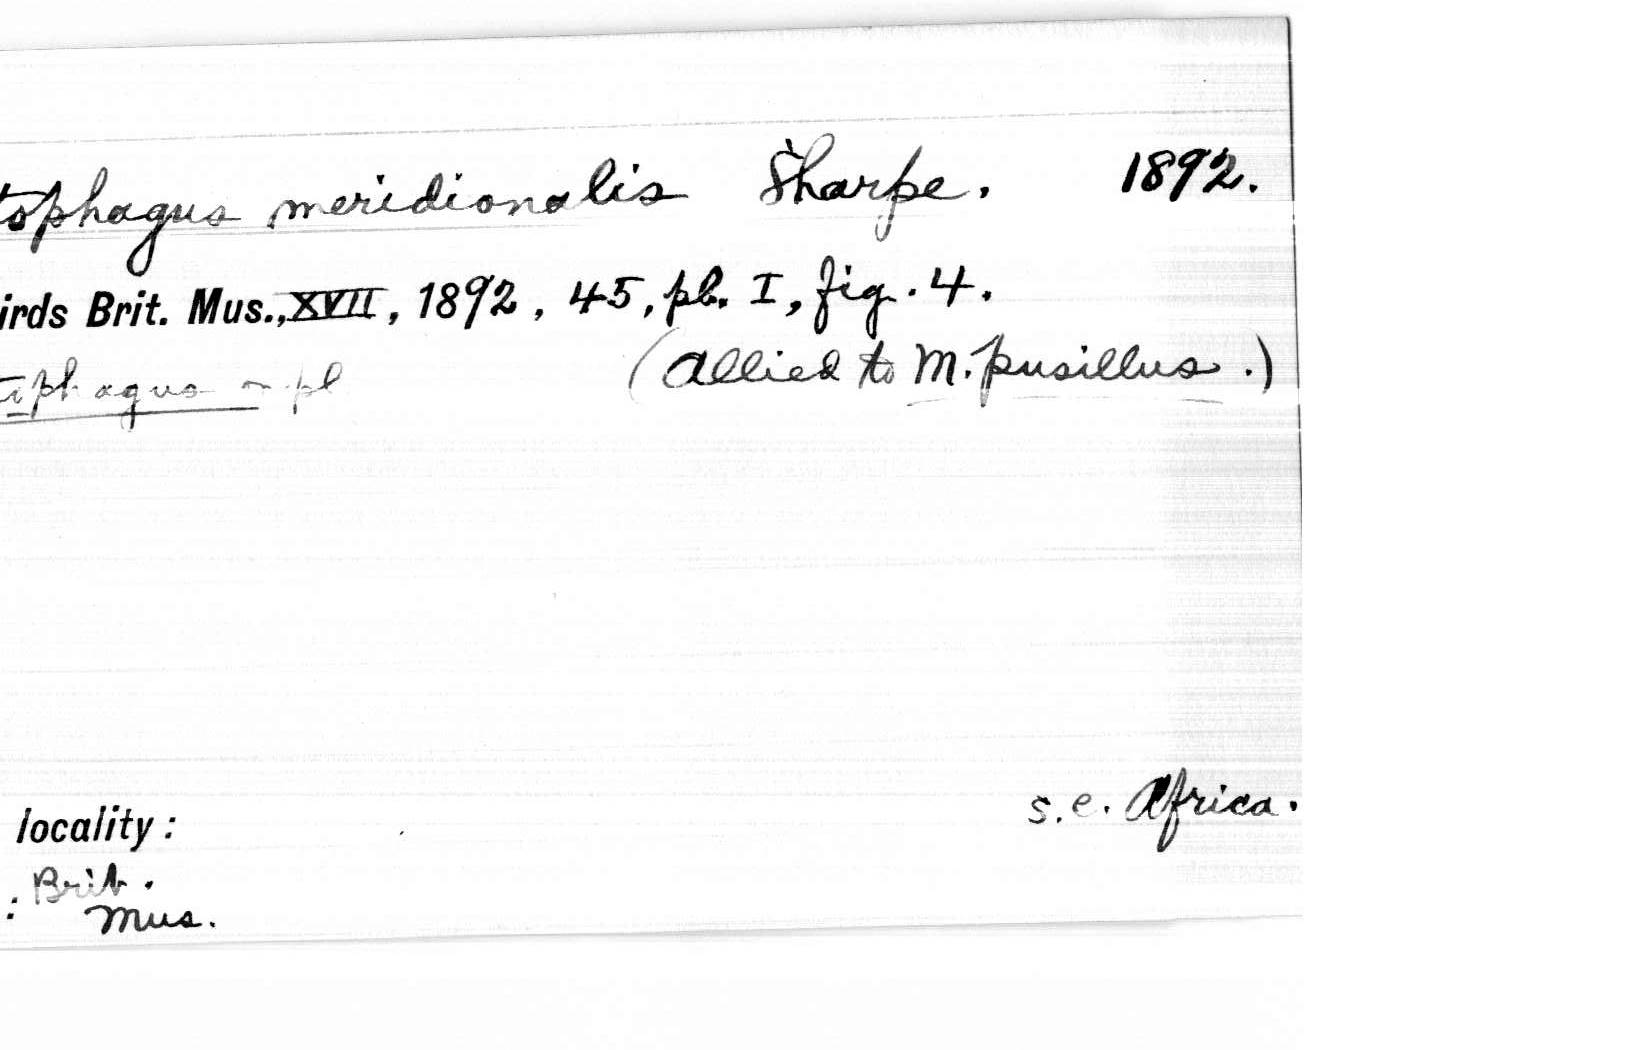 tophagus meridionalis Sharpe. 1892.
irds Brit. Mus., XVII, 1892, 45, pl. I, fig. 4.
tophagus pl (allied to M. pusillus.)
s.e. Africa.
locality:
: Brit.
Mus.